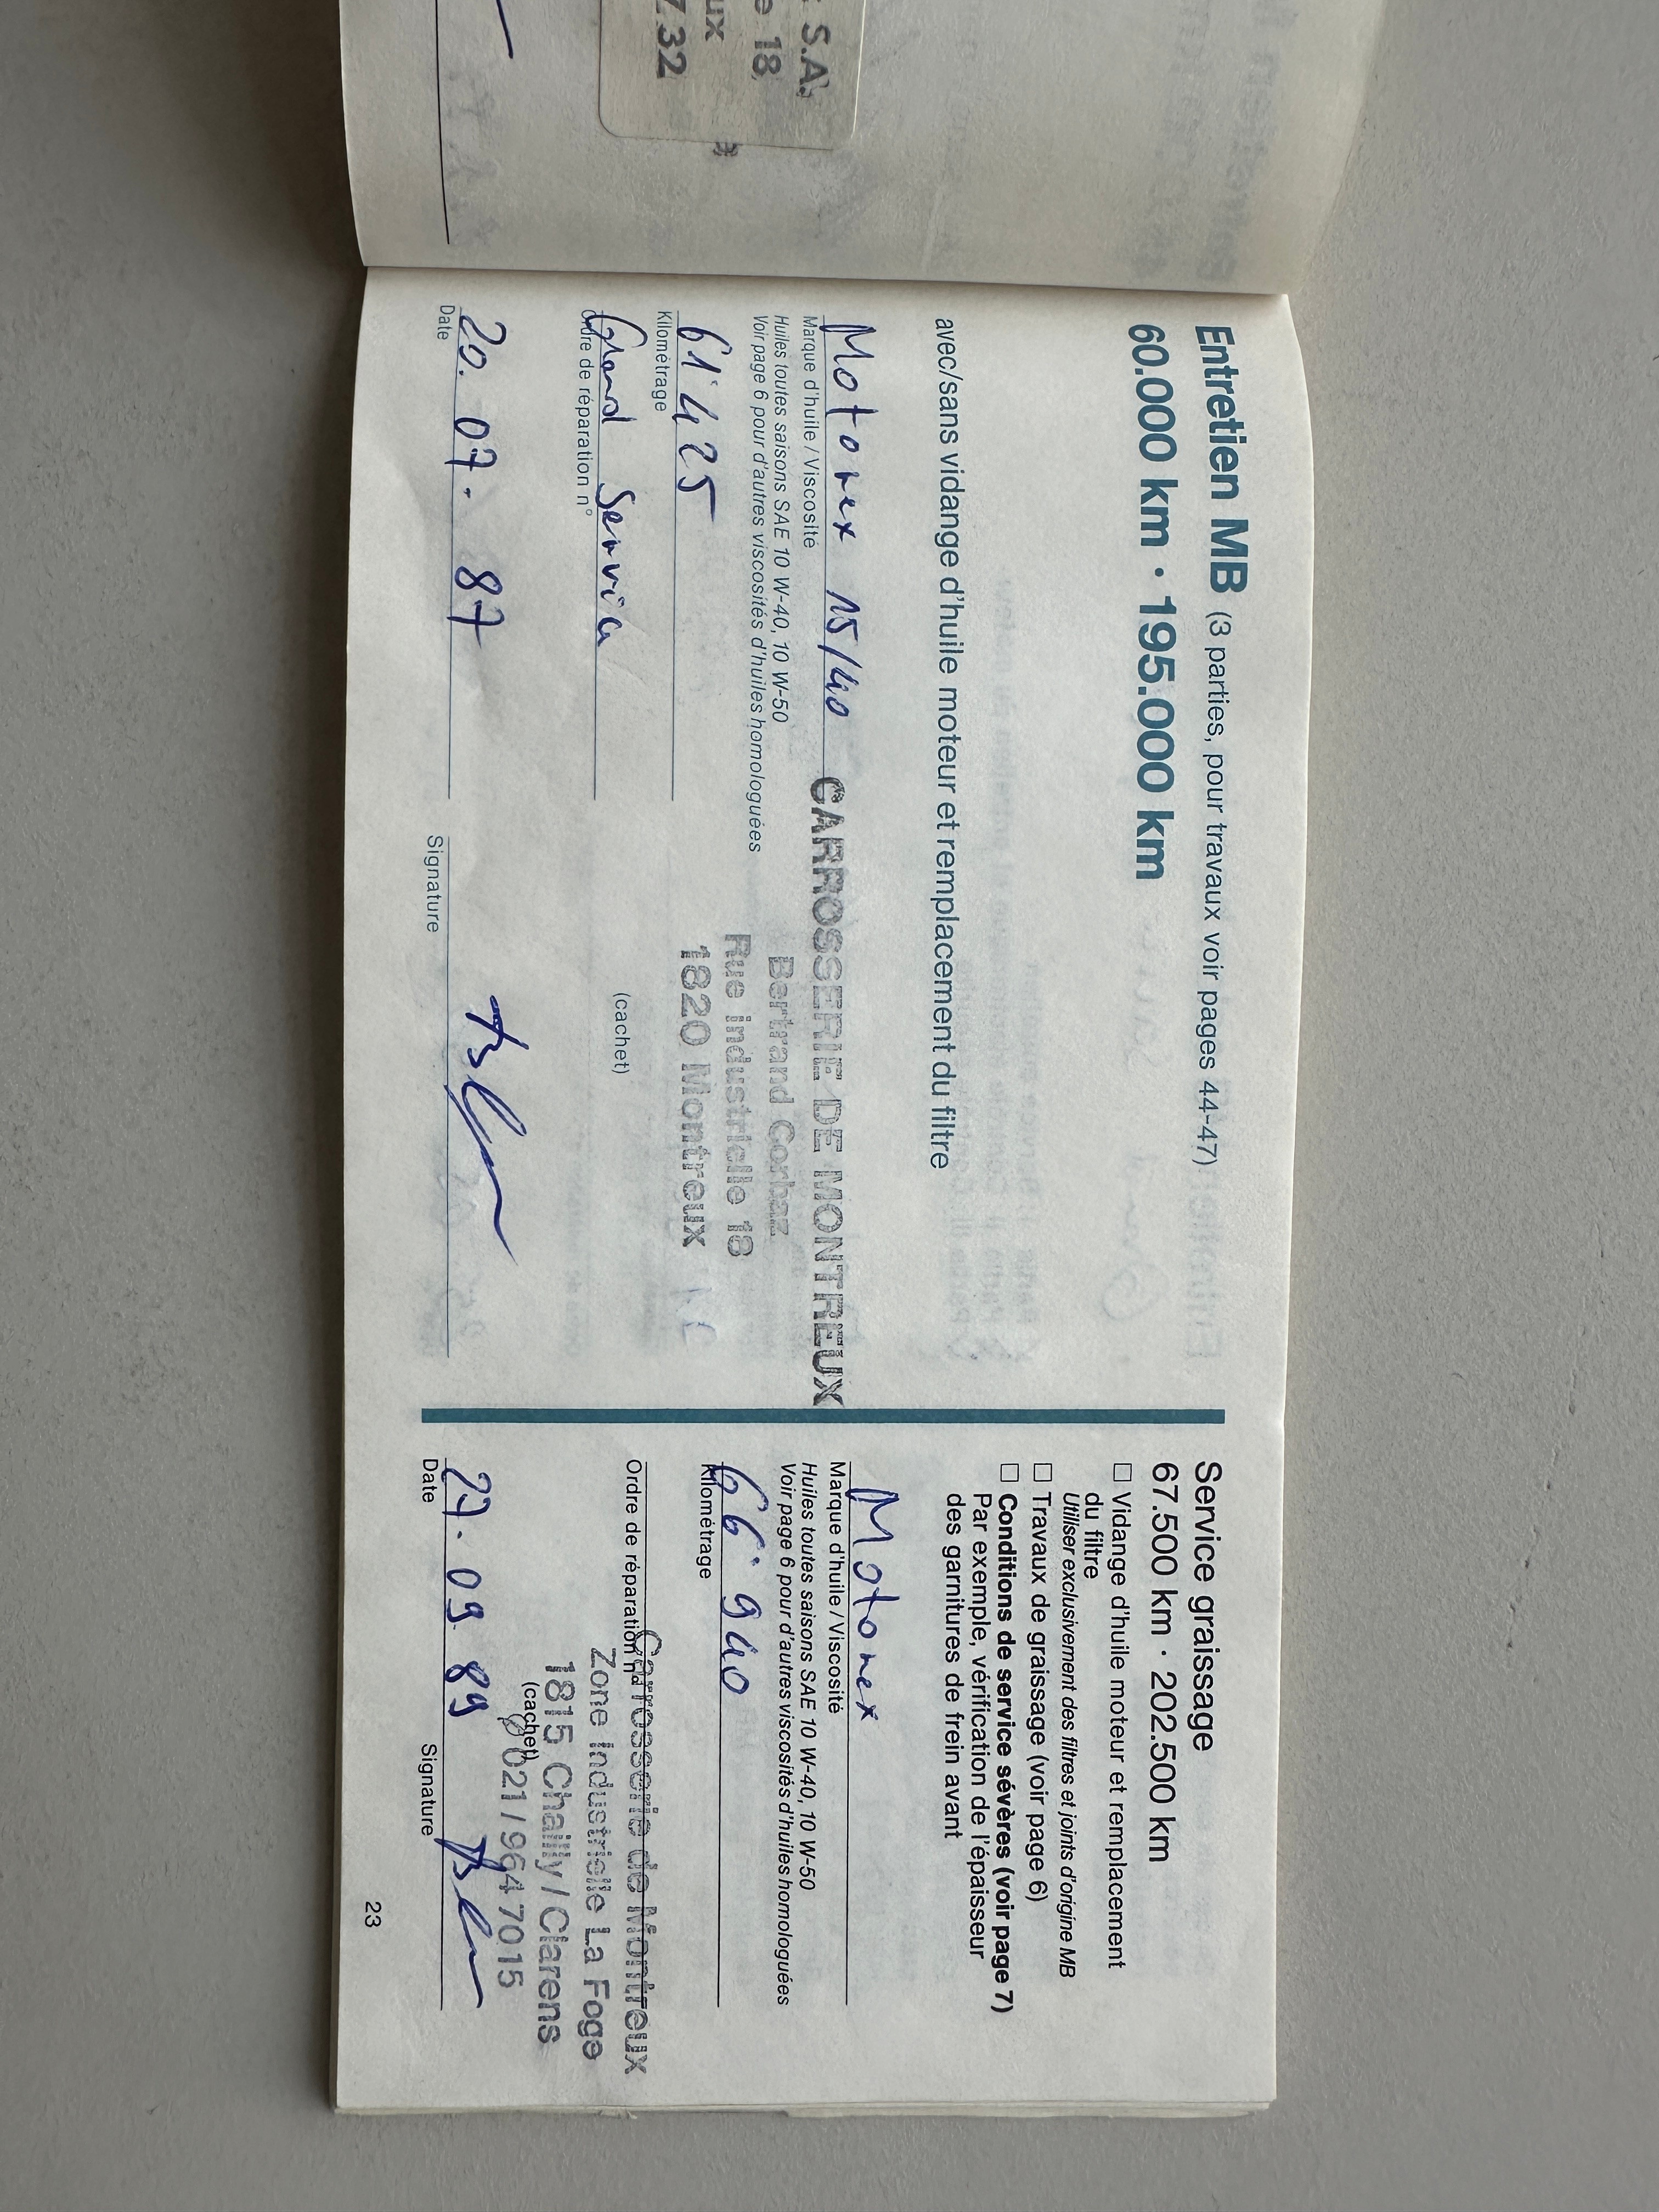 S.A.
e 18
ux
7.32
Entretien MB (3 parties, pour travaux voir pages 44-47)
60.000 km · 195.000 km
avec/sans vidange d'huile moteur et remplacement du filtre
Motorex 15/40
Marque d'huile/Viscosité
Huiles toutes saisons SAE 10 W-40, 10 W-50
Voir page 6 pour d'autres viscosités d'huiles homologuées
61'425
Kilométrage
Grand Service
Ordre de réparation n°
20. 07. 87
Date
CARROSSERIE DE MONTREUX
Bertrand Corbaz
Rue industrielle 18
1820 Montreux
(cachet)
Signature
Service graissage
67.500 km · 202.500 km
☐ Vidange d'huile moteur et remplacement
du filtre
Utiliser exclusivement des filtres et joints d'origine MB
☐ Travaux de graissage (voir page 6)
☐ Conditions de service sévères (voir page 7)
Par exemple, vérification de l'épaisseur
des garnitures de frein avant
Motorex
Marque d'huile/Viscosité
Huiles toutes saisons SAE 10 W-40, 10 W-50
Voir page 6 pour d'autres viscosités d'huiles homologuées
66'940
Kilométrage
Ordre de réparation n°
Carrosserie de Montreux
Zone Industrielle La Foge
1815 Chailly/Clarens
(cachet)
021/964 7015
29. 09. 89
Date
Signature
23